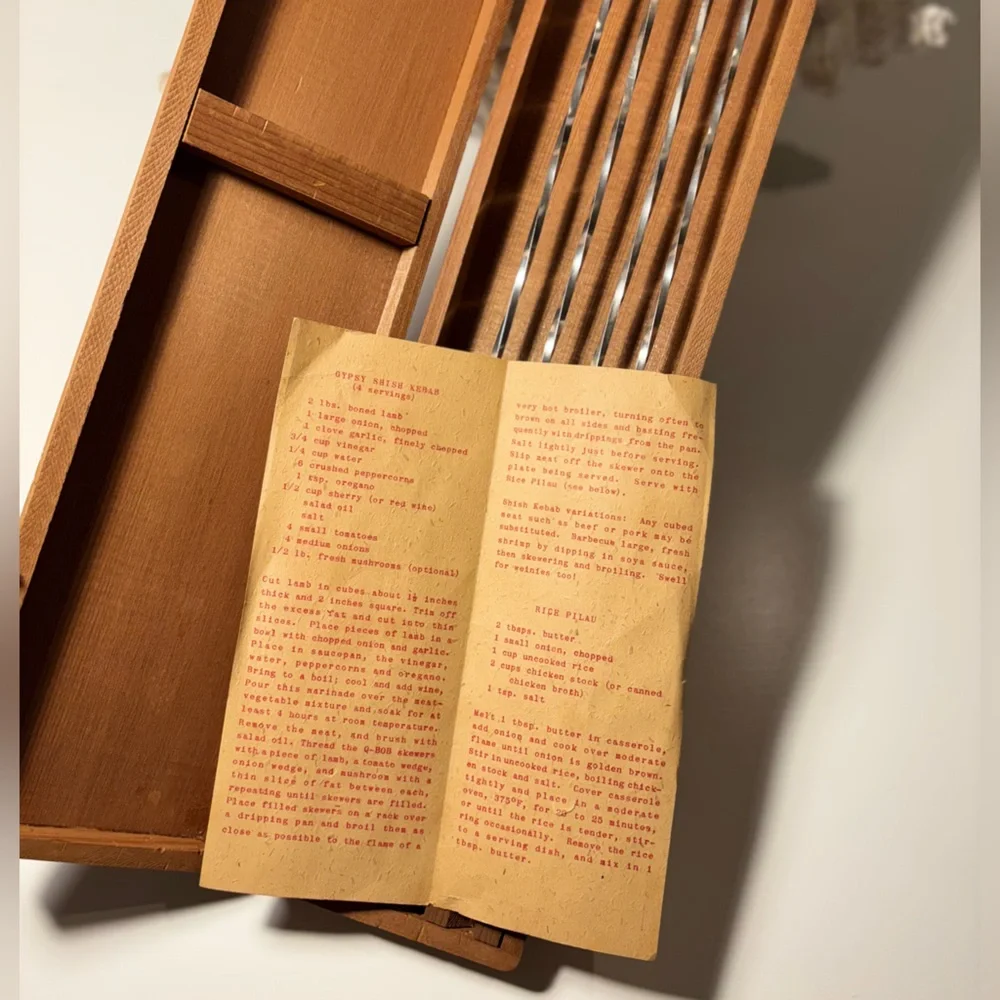 GYPSY SHISH KEBAB
(4 servings)
2 lbs. boned lamb
1 large onion, chopped
1 clove garlic, finely chopped
3/4 cup vinegar
1/4 cup water
6 crushed peppercorns
1 tsp. oregano
1/2 cup sherry (or red wine)
salad oil
salt
4 small tomatoes
4 medium onions
1/2 lb. fresh mushrooms (optional)
Cut lamb in cubes about 1½ inches
thick and 2 inches square. Trim off
the excess fat and cut into thin
slices. Place pieces of lamb in a
bowl with chopped onion and garlic.
Place in saucepan, the vinegar,
water, peppercorns and oregano.
Bring to a boil; cool and add wine,
Pour this marinade over the meat-
vegetable mixture and soak for at
least 4 hours at room temperature.
Remove the meat, and brush with
salad oil. Thread the Q-BOB skewers
with a piece of lamb, a tomato wedge,
onion wedge, and mushroom with a
thin slice of fat between each,
repeating until skewers are filled.
Place filled skewers on a rack over
a dripping pan and broil them as
close as possible to the flame of a
very hot broiler, turning often to
brown on all sides and basting fre-
quently with drippings from the pan.
Salt lightly just before serving.
Slip meat off the skewer onto the
plate being served. Serve with
Rice Pilau (see below).
Shish Kebab variations: Any cubed
meat such as beef or pork may be
substituted. Barbecue large, fresh
shrimp by dipping in soya sauce,
then skewering and broiling. Swell
for weinies too!
RICE PILAU
2 tbsps. butter
1 small onion, chopped
1 cup uncooked rice
2 cups chicken stock (or canned
chicken broth)
1 tsp. salt
Melt 1 tbsp. butter in casserole,
add onion and cook over moderate
flame until onion is golden brown.
Stir in uncooked rice, boiling chick-
en stock and salt. Cover casserole
tightly and place in a moderate
oven, 375°F, for to 25 minutes,
or until the rice is tender, stir-
ring occasionally. Remove the rice
to a serving dish, and mix in 1
tbsp. butter.